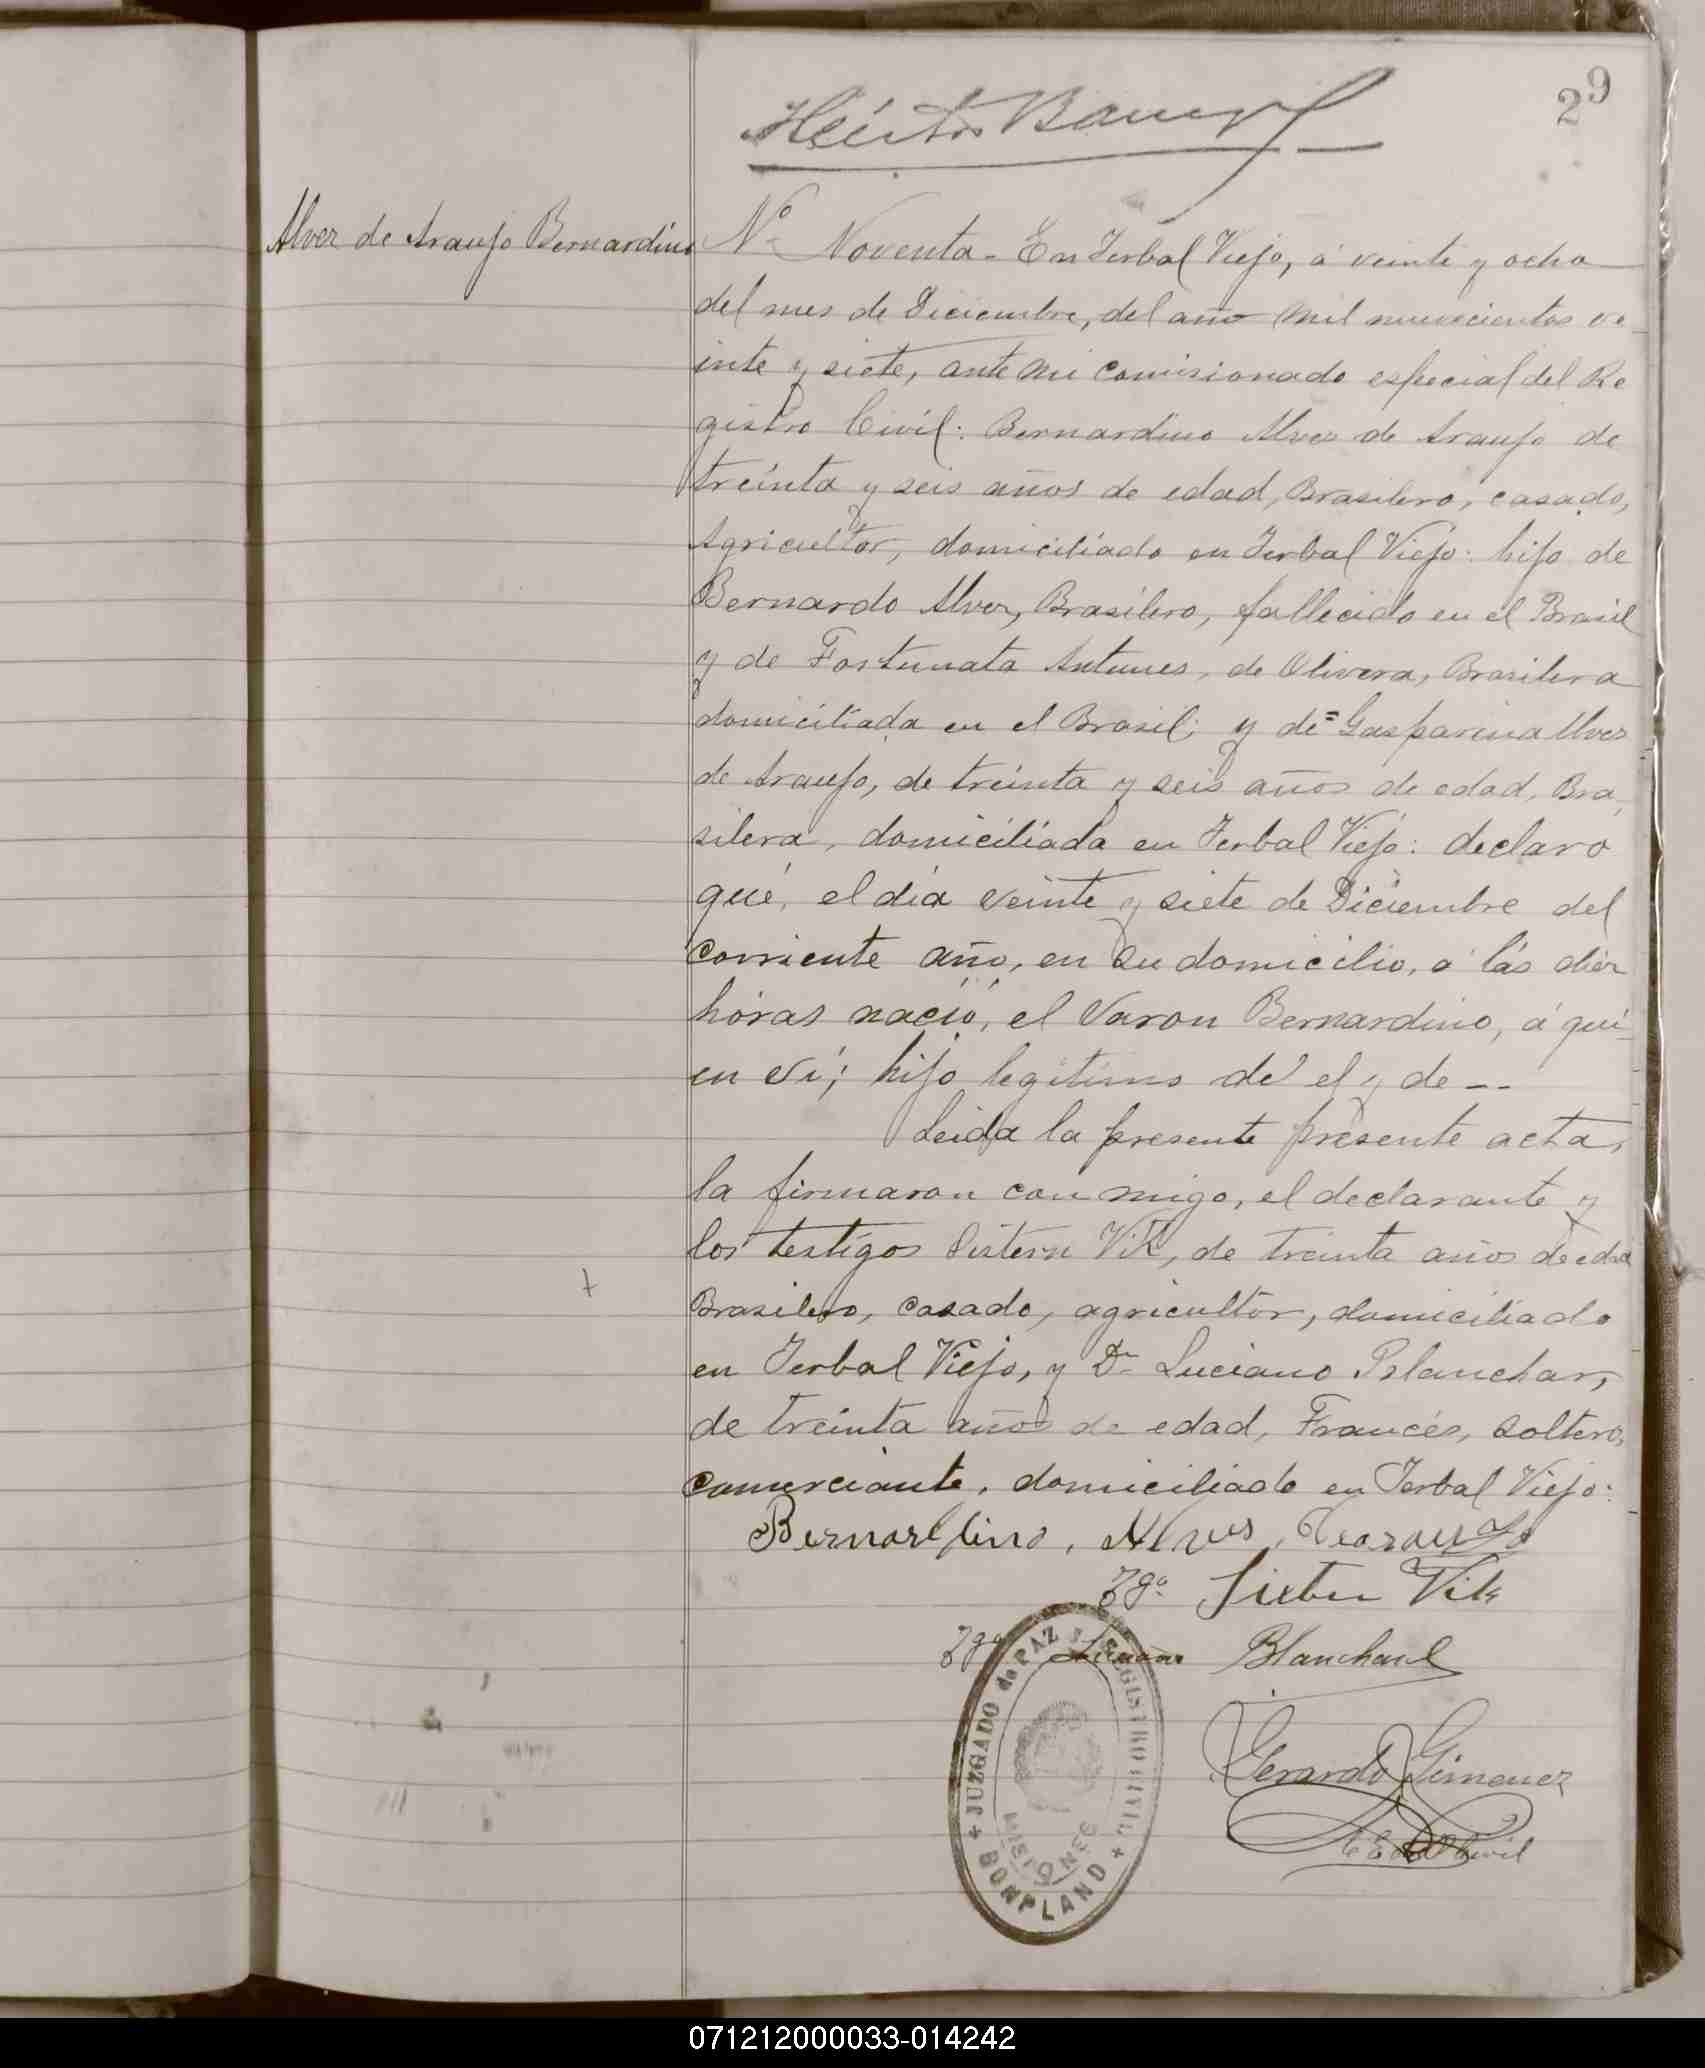 29
Héctor
Alvez de Araujo Bernardino
Nº Noventa - En Yerbal Viejo, á veinte y ocho
del mes de Diciembre, del año mil nuevecientos ve
inte y siete, ante mi comisionado especial del Re
gistro Civil: Bernardino Alvez de Araujo de
treinta y seis años de edad, Brasilero, casado,
Agricultor, domiciliado en Yerbal Viejo: hijo de
Bernardo Alvez, Brasilero, fallecido en el Brasil
y de Fortunata Antunes, de Olivera, Brasilera
domiciliada en el Brasil; y de = Gasparina Alves
de Araujo, de treinta y seis años de edad, Bra
silera, domiciliada en Yerbal Viejo: declaró
qué, el día veinte y siete de Diciembre del
corriente año, en su domicilio, a lás diez
horas nació, el Varon Bernardino, á qui
en ví; hijo legitimo de el y de --
Leida la presente presente acta,
la firmaron con migo, el declarante y
los testigos Sixten Vik, de treinta años de edad
Brasilero, casado, agricultor, domiciliado
en Yerbal Viejo, y Dn Luciano Blanchar,
de treinta años de edad, Francés, soltero,
comerciante, domiciliado en Yerbal Viejo:
Bernardino, Alves, Dearaujo
Tgo. Sixten Vik
Tgo Blanchard
JUZGADO de PAZ y REGISTRO CIVIL
MISIONES
BONPLAND
Gerardo Gimenez
Civil
071212000033-014242